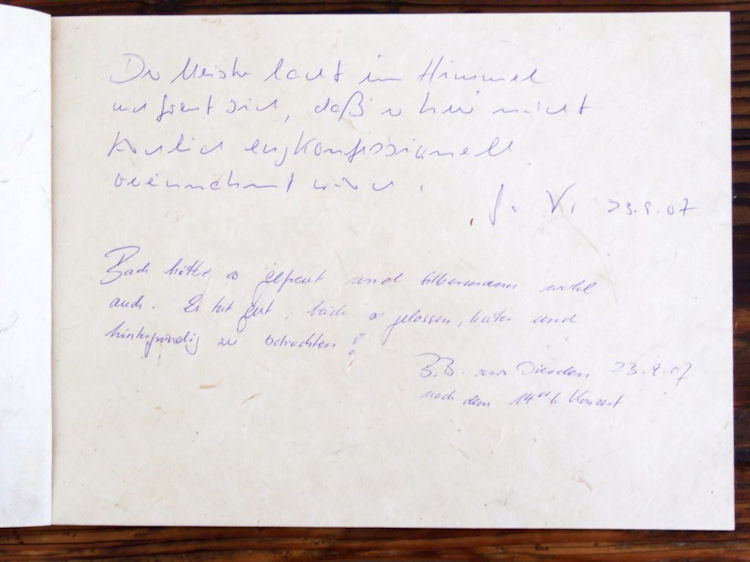 Der Meister lacht im Himmel
und freut sich, daß er hier nicht
kirchlich engkonfessionell
vereinnahmt wird.
J. V. 23.9.07
Bach hätte es gefreut und Silbermann wohl
auch. Es tut gut, sich so gelassen, heiter und
hintergründig zu betrachten!
B.B. aus Dresden 23.9.07
nach dem 14 Konzert